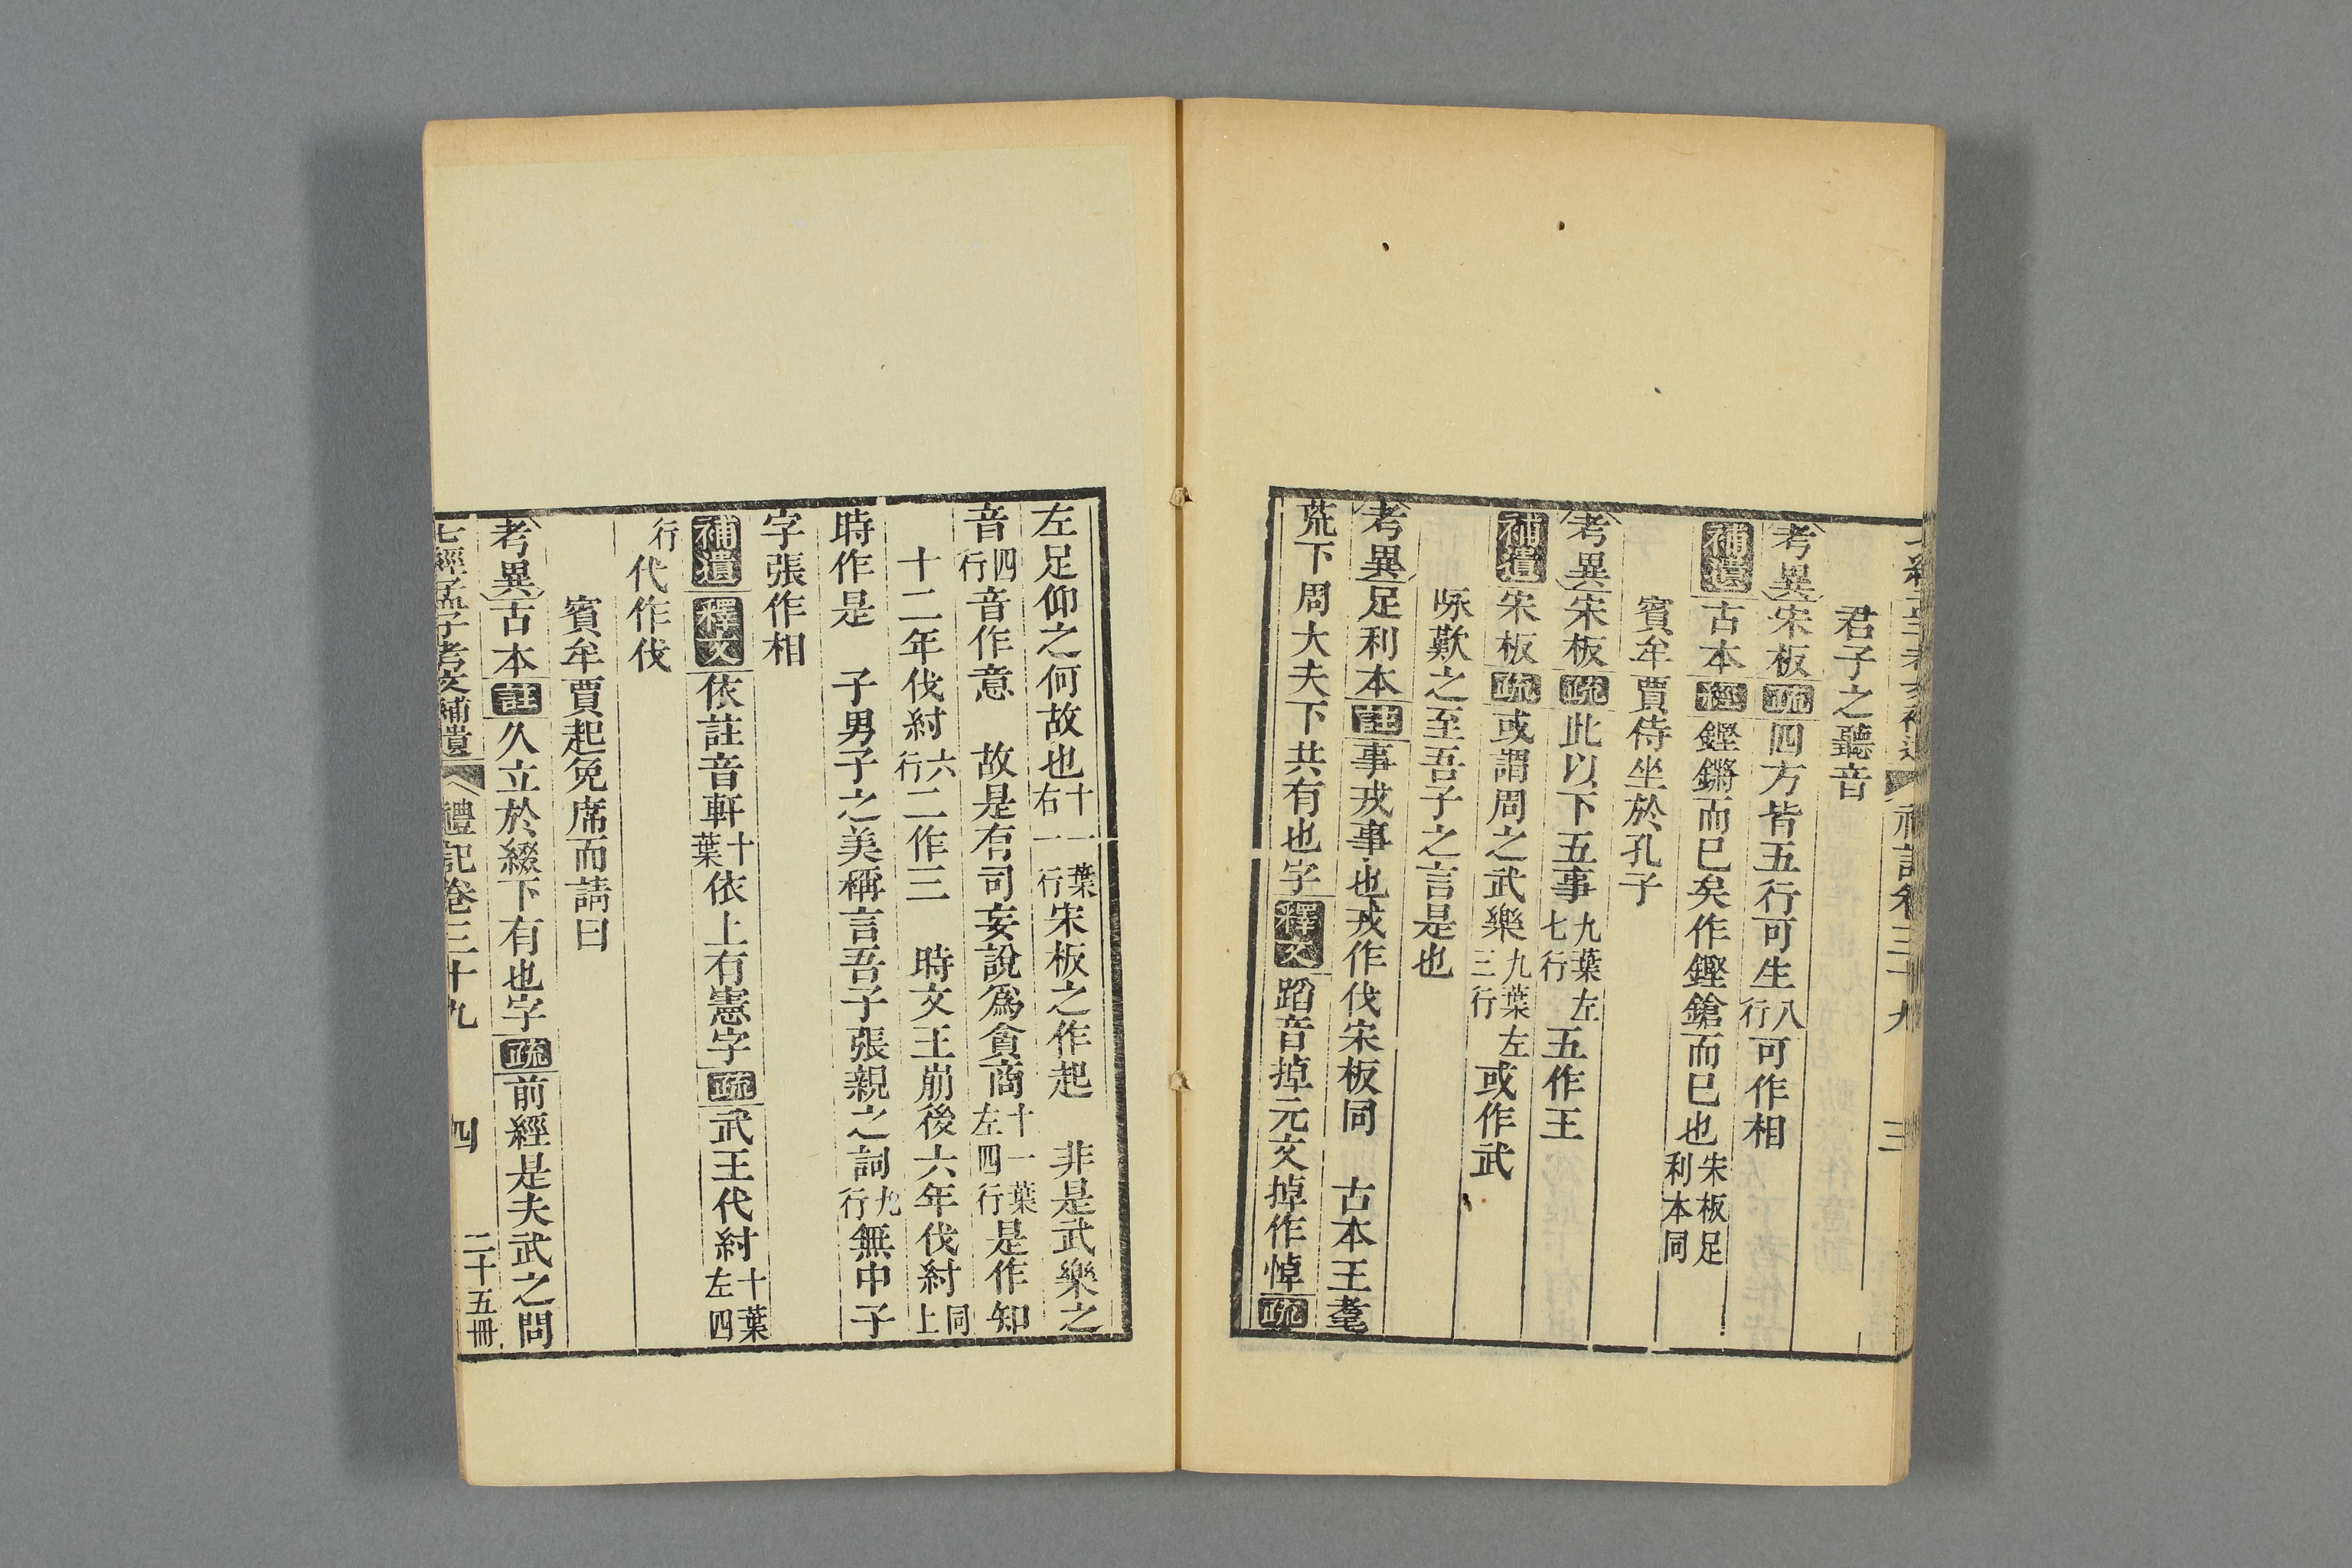 君子之聽音
考異宋板疏四方皆五行可生八行可作相
補遺古本經鏗鏘而已矣作鏗鎗而已也宋板足利本同
賓牟賈侍坐於孔子
考異宋板疏此以下五事九葉左七行五作王
補遺宋板疏或謂周之武樂九葉左三行或作武
咏歎之至吾子之言是也
考異足利本註事戎事也戎作伐宋板同　古本王耄
荒下周大夫下共有也字釋文蹈音掉元文掉作悼疏
左足仰之何故也十一葉右一行宋板之作起　非是武樂之
音四行音作意　故是有司妄說爲貪商十一葉左四行是作知
十二年伐紂六行二作三　時文王崩後六年伐紂同上
時作是　子男子之美稱言吾子張親之詞九行無中子
字張作相
補遺釋文依註音軒十葉依上有憲字疏武王代紂十葉左四
行代作伐
賓牟賈起免席而請曰
考異古本註久立於綴下有也字疏前經是夫武之問
七經孟子考文補遺　禮記卷三十九　四　二十五冊